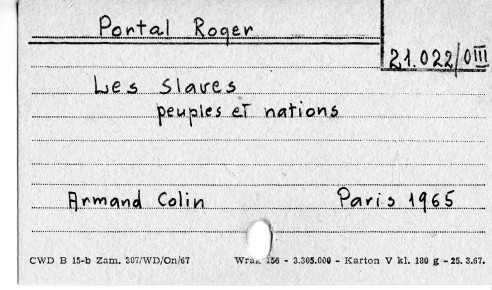 Portal Roger
21.022/0III
Les Slaves
peuples et nations
Armand Colin Paris 1965
CWD B 15-b Zam. 307/WD/On/67 156 - 3.305.000 - Karton V kl. 180 g - 25. 3.67.